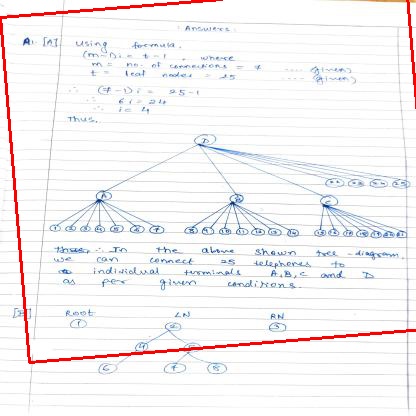 Answers:
A1. [A] Using formula.
(m-1)i = t-1, where
m = no. of connections = 7 .... (given)
t = leaf nodes = 25 .... (given)
∴ (7-1)i = 25-1
∴ 6i = 24
∴ i = 4
Thus,
D
22 23 24 25
A B C
1 2 3 4 5 6 7 8 9 10 11 12 13 14 15 16 17 18 19 20 21
∴ In the above shown tree-diagram,
we can connect 25 telephones to
individual terminals A, B, C and D
as per given conditions.
Root LN RN
1 2 3
4 5
6 7 8